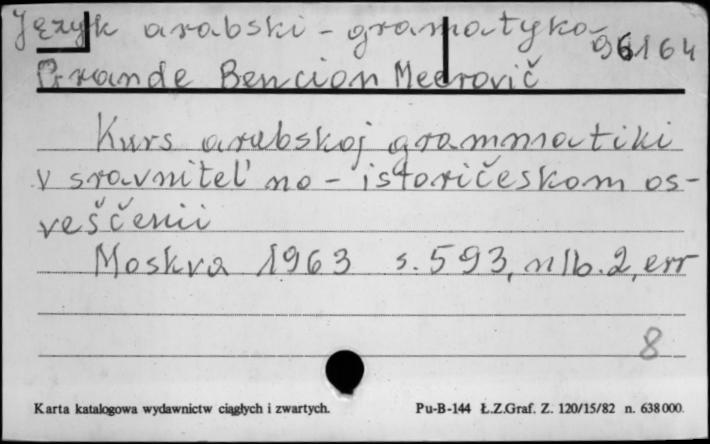 Język arabski - gramatyka
96164
Grande Bencion Meerovič
Kurs arabskoj grammatiki
v sravnitel'no - istoričeskom os-
veščenii
Moskva 1963 s. 593, nlb. 2, err
8
Karta katalogowa wydawnictw ciągłych i zwartych. Pu-B-144 Ł.Z.Graf. Z. 120/15/82 n. 638000.